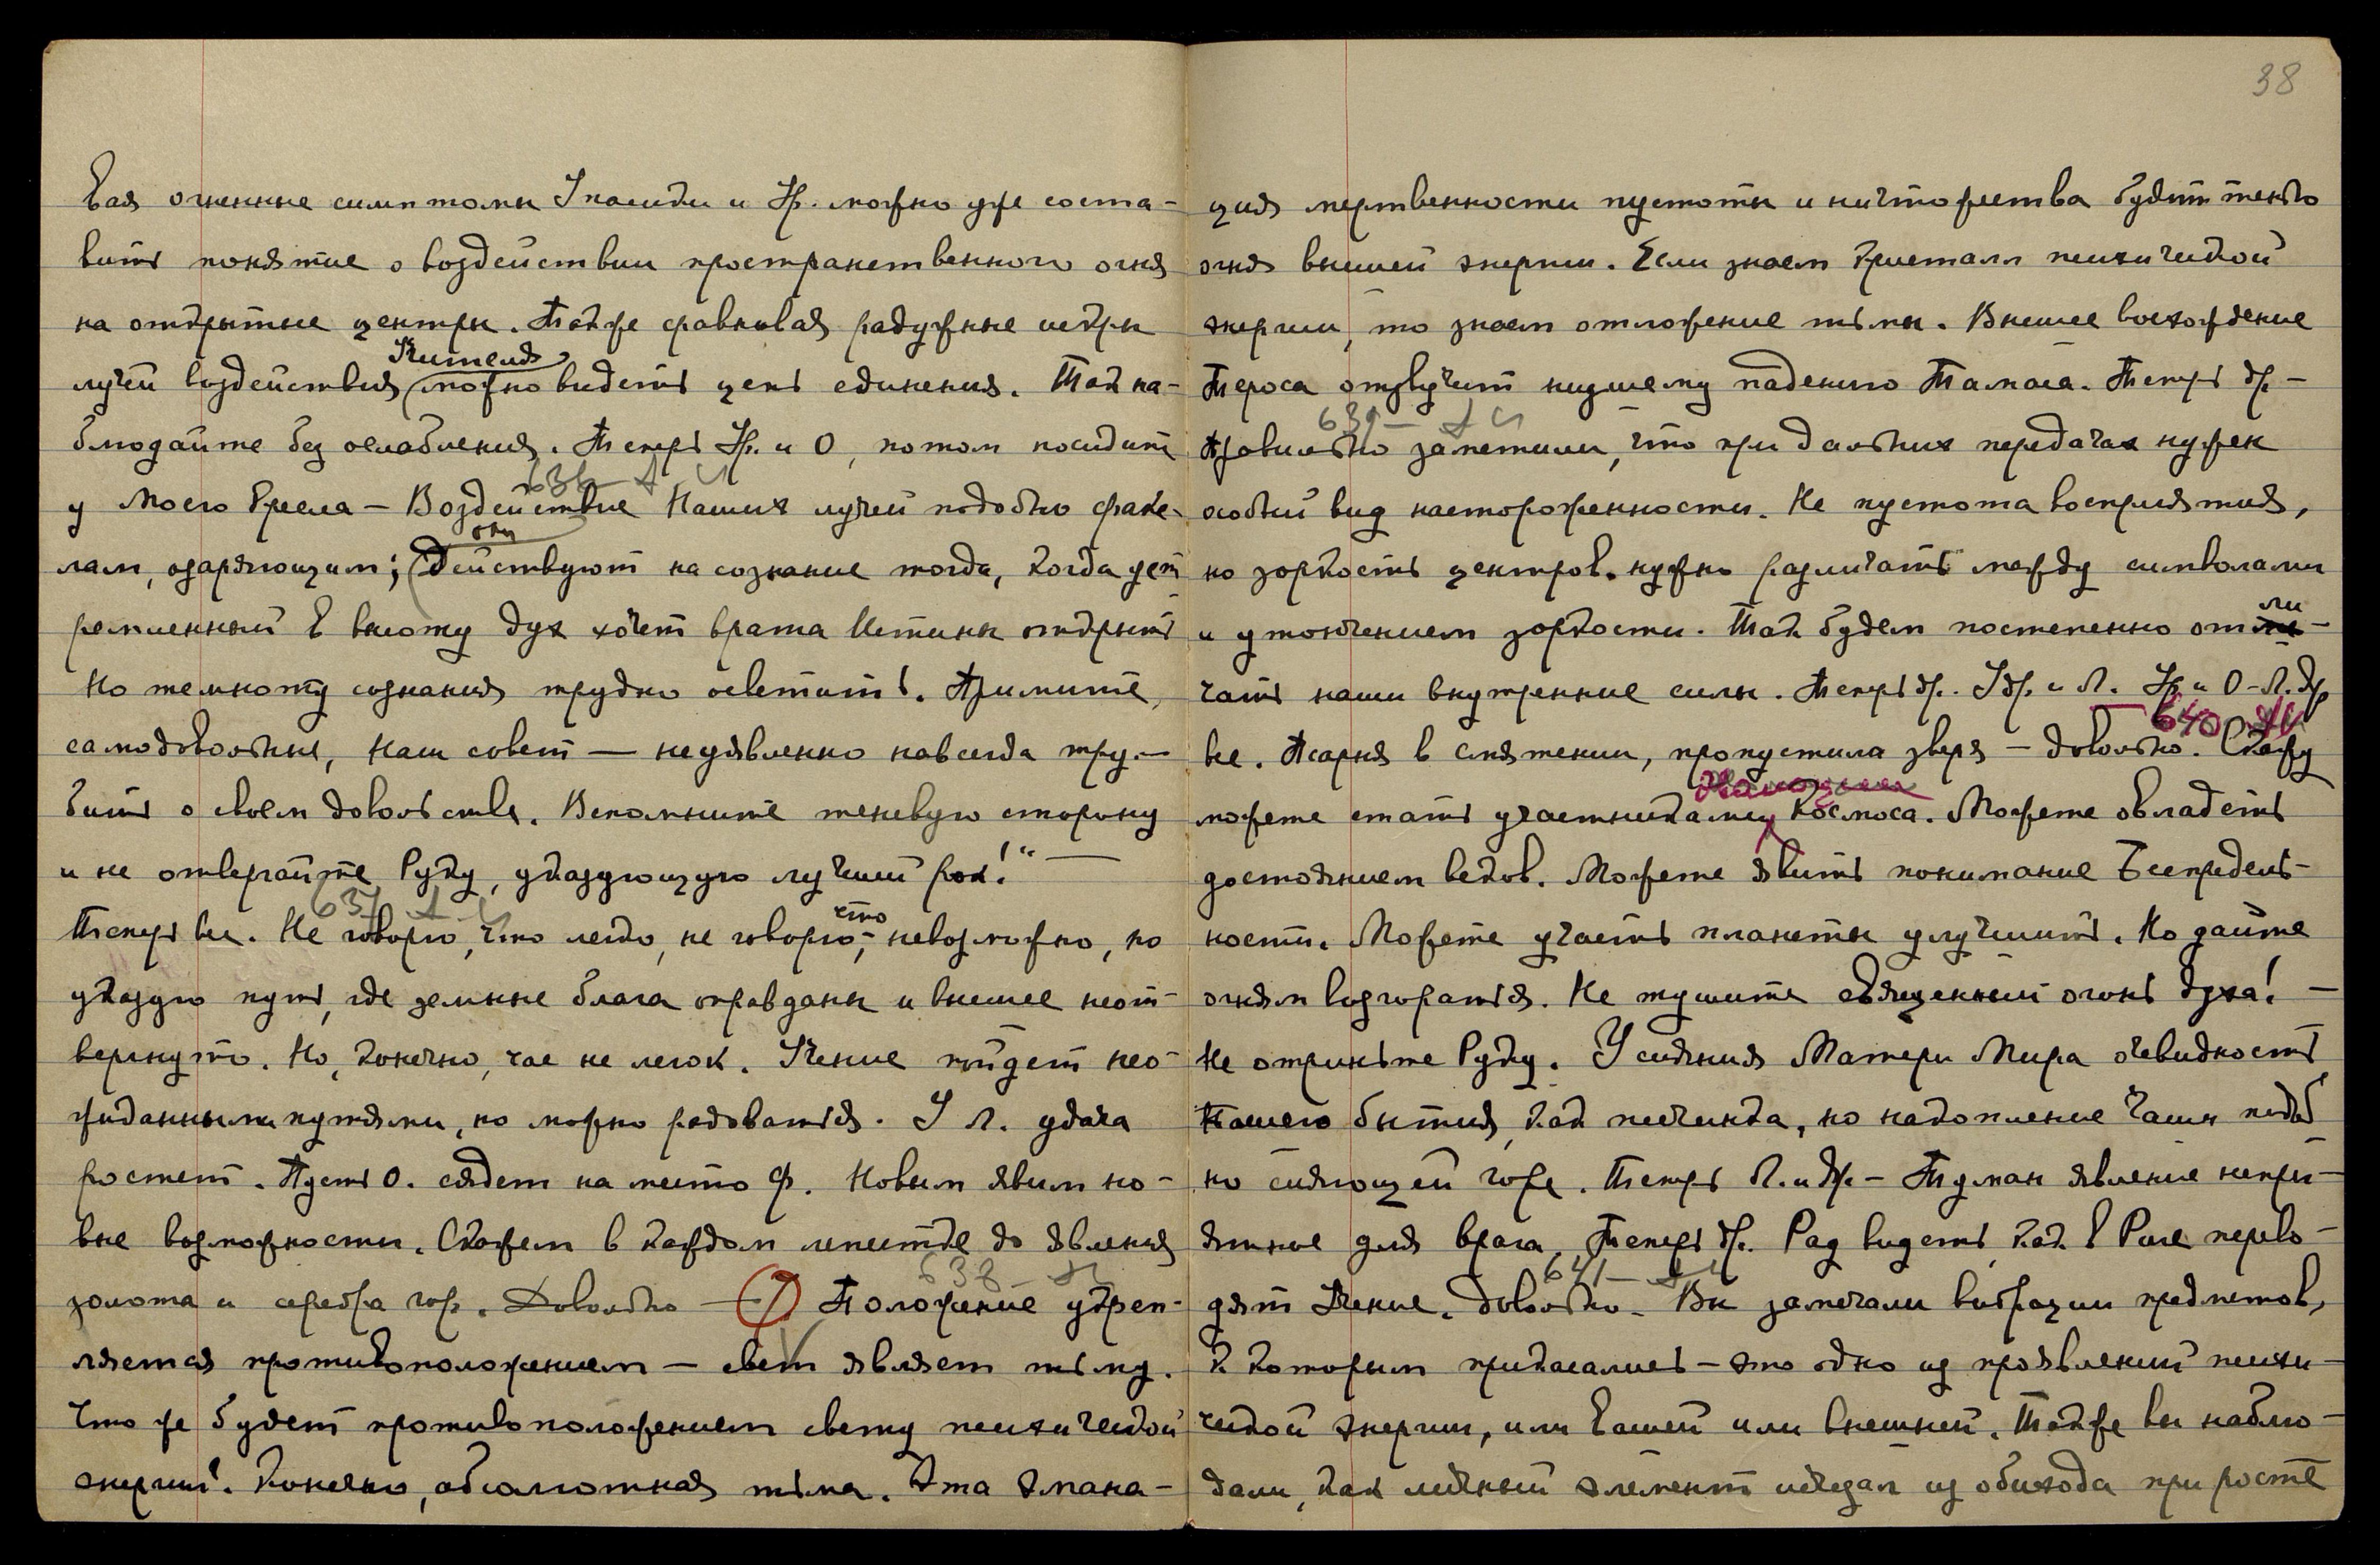 вая огненные симптомы Упасиди и Ур. можно уже соста-
вить понятие о воздействии пространственного огня
на открытые центры. Также сравнивая радужные искры
Учителя
лучей воздействия можно видеть цепь единения. Так на-
блюдайте без ослабления. Теперь Ур. и О, потом посидит
636 – А Й
у Моего Кресла – Воздействие Наших лучей подобно факе-
они
лам, озаряющим; действуют на сознание тогда, когда уст
ремленный в высоту дух хочет врата Истины открыть
Но темноту сознания трудно осветить. Примите,
самодовольные, Наш совет — неуявленно навсегда тру-
бить о своем довольстве. Вспомните теневую сторону
и не отвергайте Руку, указующую лучший рок!" —
637 А Й
Теперь все. Не говорю, что легко, не говорю, что невозможно, но
указую путь, где земные блага оправданы и высшее неот-
вергнуто. Но, конечно, час не легок. Учение пойдет нео-
жиданными путями, но можно радоваться. У Л. удача
ростет. Пусть О. сядет на место Ф. Новым явим но-
вые возможности. Скажем в каждом лепестке до явления
золота и серебра гор. Довольно —
638 – А Й
Положение укреп-
ляется противоположением – свет являет тьму.
Что же будет противоположением свету психической
энергии? Конечно, абсолютная тьма. Эта эмана-
38
ция мертвенности пустоты и ничтожества будет тенью
огня высшей энергии. Если знаем кристалл психической
энергии, то знаем отложение тьмы. Высшее восхождение
Тероса отзвучит низшему падению Тамаса. Теперь др –
639 – А Й
Правильно заметили, что при дальних передачах нужен
особый вид настороженности. Не пустота восприятия,
но зоркость центров. нужно различать между символами
и утончением зоркости. Так будем постепенно отли-
чать наши внутренние силы. Теперь др. Удр. и Л. Ур и О – Л. др
640 АЙ
все. Псарня в смятении, пропустила зверя – довольно. Скажу
можете стать участниками Космоса. Можете овладеть
достоянием веков. Можете явить понимание Беспредель-
ности. Можете участь планеты улучшить. Но дайте
огням возгораться. Не тушите священный огонь духа! –
Не отриньте Руку. У сияния Матери Мира очевидность
Нашего бытия, как песчинка, но накопление Чаши подоб
но сияющей горе. Теперь Л. и др – Туман явление непри-
ятное для врага. Теперь др. Рад видеть как в Риге перево-
641 – А Й
дят Учение. Довольно – Вы замечали вибрации предметов,
к которым прикасались – это одно из проявлений психи-
ческой энергии, или вашей или внешней. Также вы наблю-
дали, как личный элемент исчезал из обихода при росте